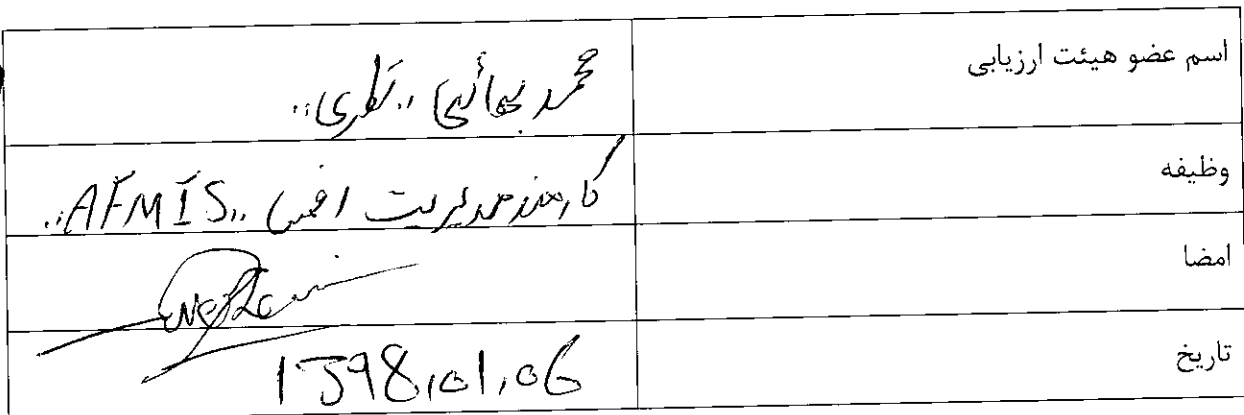 اسم عضو هیئت ارزیابی محمد بهائی "نظری"
وظیفه کارمند مدیریت افمس "AFMIS"
امضا
تاریخ 1398,01,06